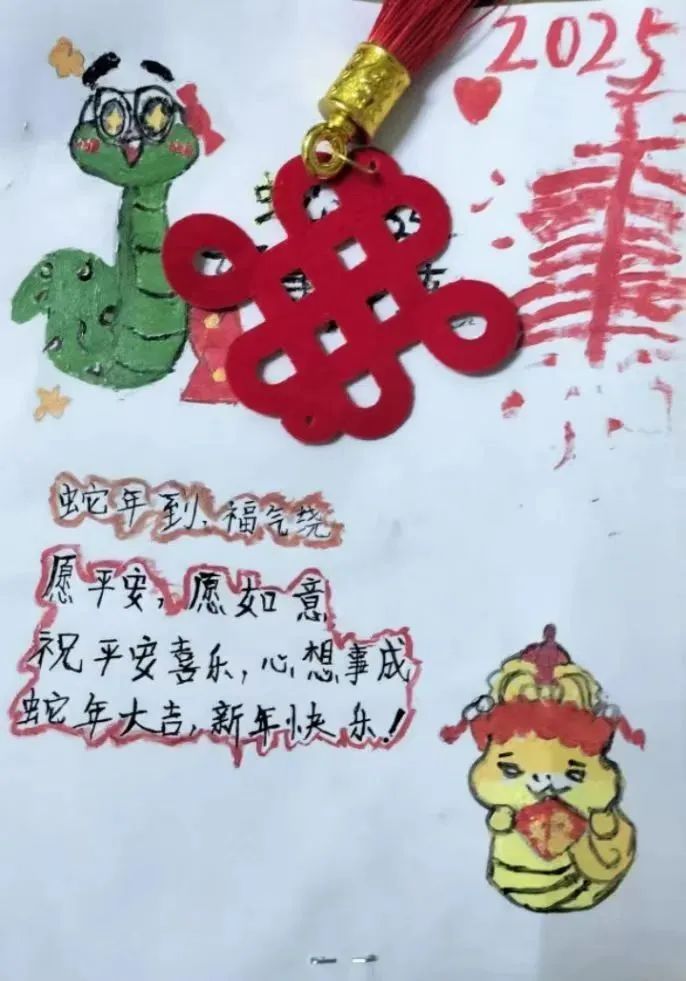 2025
蛇年到、福气绕
愿平安，愿如意
祝平安喜乐，心想事成
蛇年大吉，新年快乐！